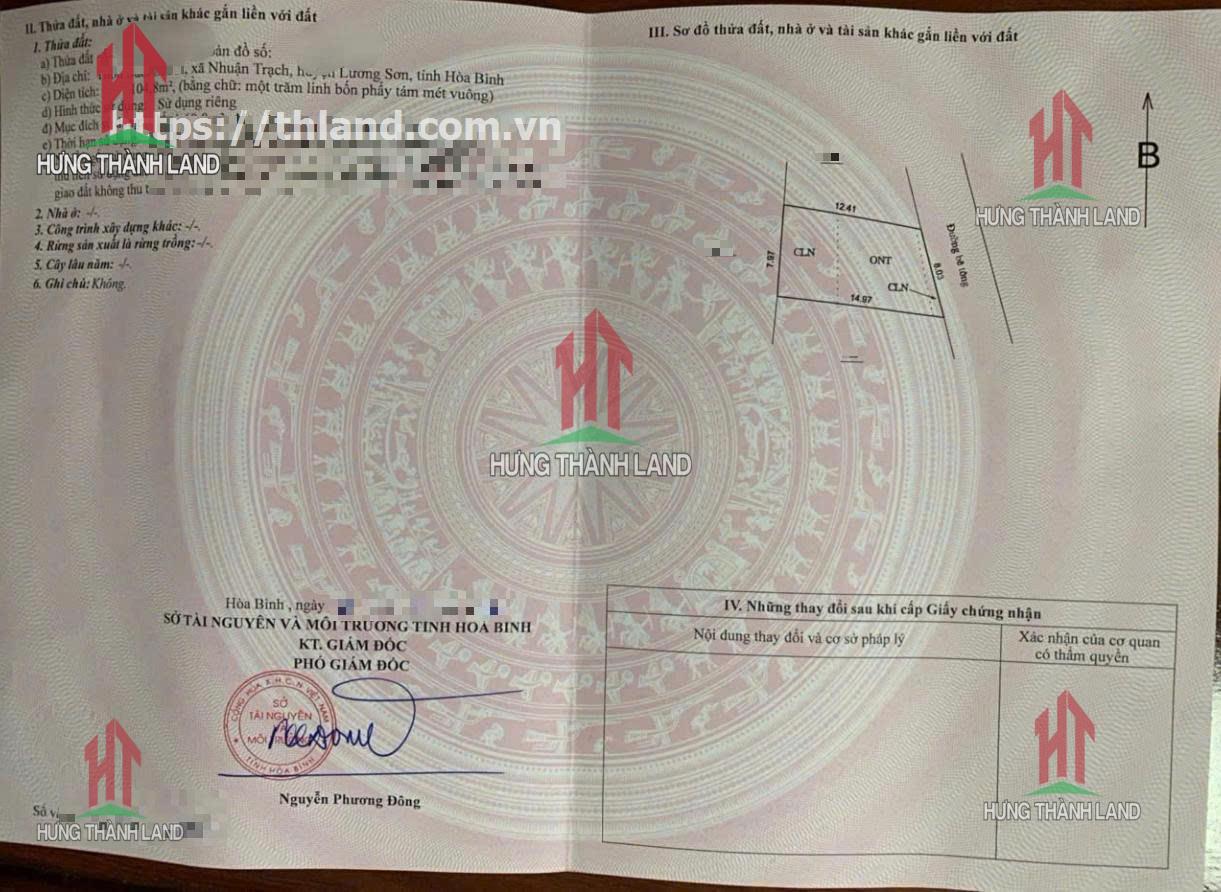 II. Thửa đất, nhà ở và tài sản khác gắn liền với đất
1. Thửa đất:
a) Thửa đất
bản đồ số:
b) Địa chỉ: xã Nhuận Trạch, huyện Lương Sơn, tỉnh Hòa Bình
c) Diện tích: 104,8m², (bằng chữ: một trăm linh bốn phẩy tám mét vuông)
d) Hình thức sử dụng: Sử dụng riêng
đ) Mục đích
e) Thời hạn sử dụng
https://thland.com.vn
HƯNG THÀNH LAND
giao đất không thu
2. Nhà ở: -/-.
3. Công trình xây dựng khác: -/-.
4. Rừng sản xuất là rừng trồng: -/-.
5. Cây lâu năm: -/-.
6. Ghi chú: Không.
III. Sơ đồ thửa đất, nhà ở và tài sản khác gắn liền với đất
B
HƯNG THÀNH LAND
12.41
7.97
CLN
ONT
CLN
14.97
8.03
Đường bê tông
HƯNG THÀNH LAND
Hòa Bình , ngày
SỞ TÀI NGUYÊN VÀ MÔI TRƯỜNG TỈNH HÒA BÌNH
KT. GIÁM ĐỐC
PHÓ GIÁM ĐỐC
CỘNG HÒA X.H.C.N VIỆT NAM
SỞ
TÀI NGUYÊN
MÔI TRƯỜNG
TỈNH HÒA BÌNH
Nguyễn Phương Đông
Số v
HƯNG THÀNH LAND
IV. Những thay đổi sau khi cấp Giấy chứng nhận
Nội dung thay đổi và cơ sở pháp lý
Xác nhận của cơ quan
có thẩm quyền
HƯNG THÀNH LAND